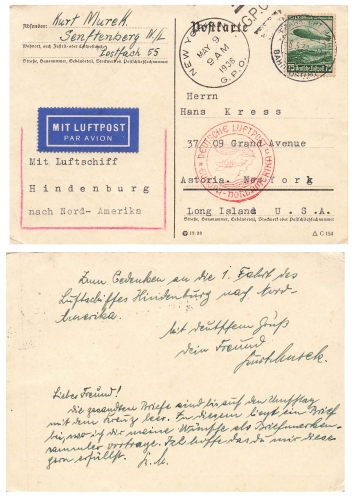 Absender: Kurt Murek.
Senftenberg N/L
Postfach 55
Straße, Hausnummer, Gebäudeteil, Stockwerk od. Postschließfachnummer
Postkarte
NEW YORK
MAY 9
9 AM
1936
G.P.O.
75 Deutsche Luftpost 75
MIT LUFTPOST
PAR AVION
Mit Luftschiff
Hindenburg
nach Nord- Amerika
Herrn
Hans Kress
37 09 Grand Avenue
DEUTSCHE LUFTPOST
NORDAMERIKA
Astoria. New York
Long Island U.S.A.
Straße, Hausnummer, Gebäudeteil, Stockwerk od. Postschließfachnummer
C 154
Zum Gedenken an die 1. Fahrt des
Luftschiffes Hindenburg nach Nord-
Amerika.
Mit deutschem Gruß
Dein Freund
Kurt Murek.
Liebe Freund!
die gesandten Briefe sind bis auf den Umschlag
mit dem Kreuz leer. In diesem liegt ein Brief
bei, wo ich dir meine Wünsche als Briefmarken-
sammler vortrage. Ich hoffe das du mir diese
gern erfüllst.